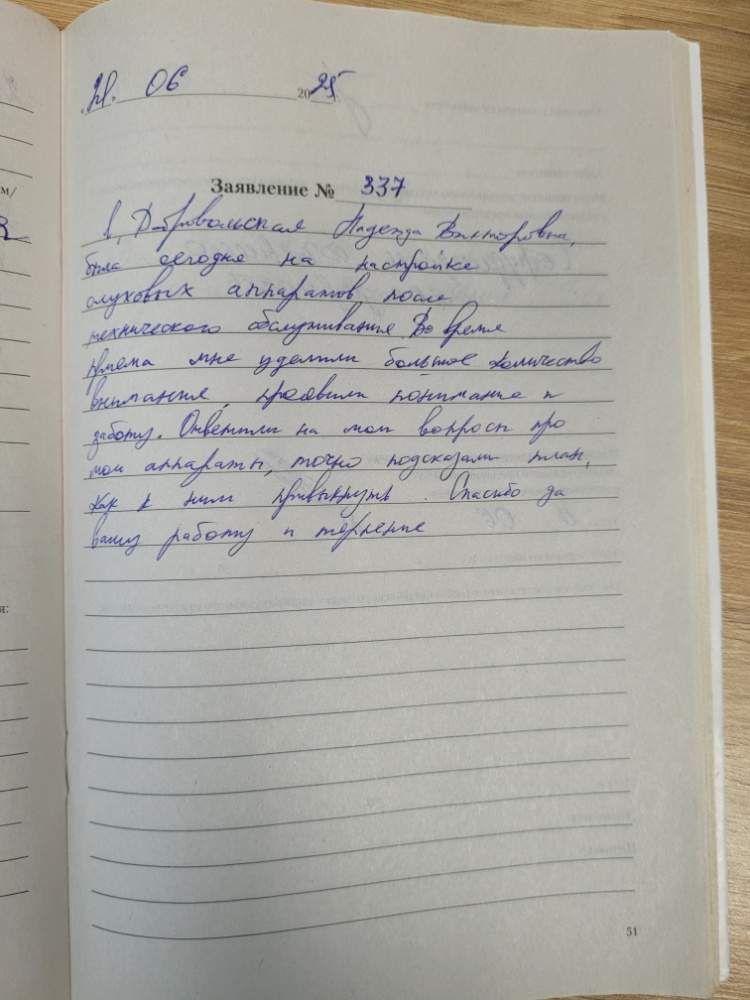 06 2025
Заявление № 337
Я, Добровольская Надежда Викторовна,
была сегодня на настройке
слуховых аппаратов, после
технического обслуживания. Во время
приема мне уделили большое количество
внимания, проявили понимание и
заботу. Ответили на мои вопросы про
мои аппараты, точно подсказали план,
как к ним привыкнуть. Спасибо за
вашу работу и терпение
51
м/
я: